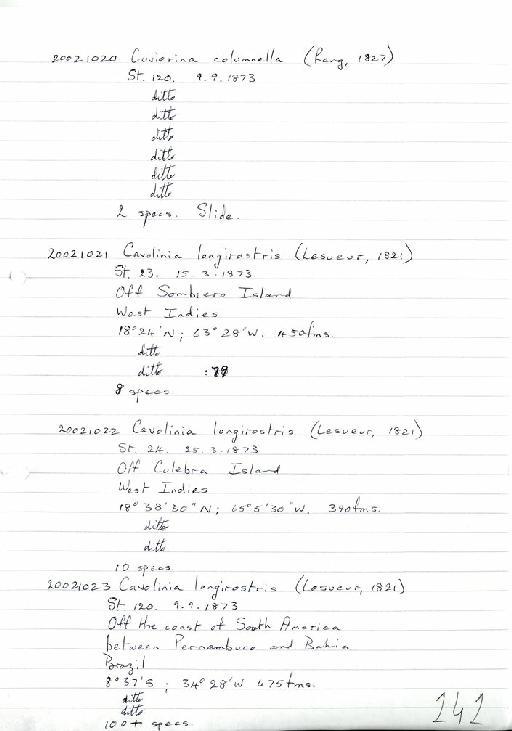 20021020 Cuvierina columnella (Rang, 1827)
St. 120. 9.9.1873
ditto
ditto
ditto
ditto
ditto
ditto
2 specs. Slide.
20021021 Cavolinia longirostris (Lesueur, 1821)
St. 23. 15.3.1873
Off Sombrero Island
West Indies
18°24'N; 63°28'W. 450fms.
ditto
ditto :79
8 specs
20021022 Cavolinia longirostris (Lesueur, 1821)
St. 24. 25.3.1873
Off Culebra Island
West Indies
18°38'30"N; 65°5'30"W. 390fms.
ditto
ditto
10 specs
20021023 Cavolinia longirostris (Lesueur, 1821)
St 120. 9.9.1873
Off the coast of South America
between Pernambuco and Bahia
Brazil
8°37'S; 34°28'W 475fms.
ditto
ditto
100+ specs.
242